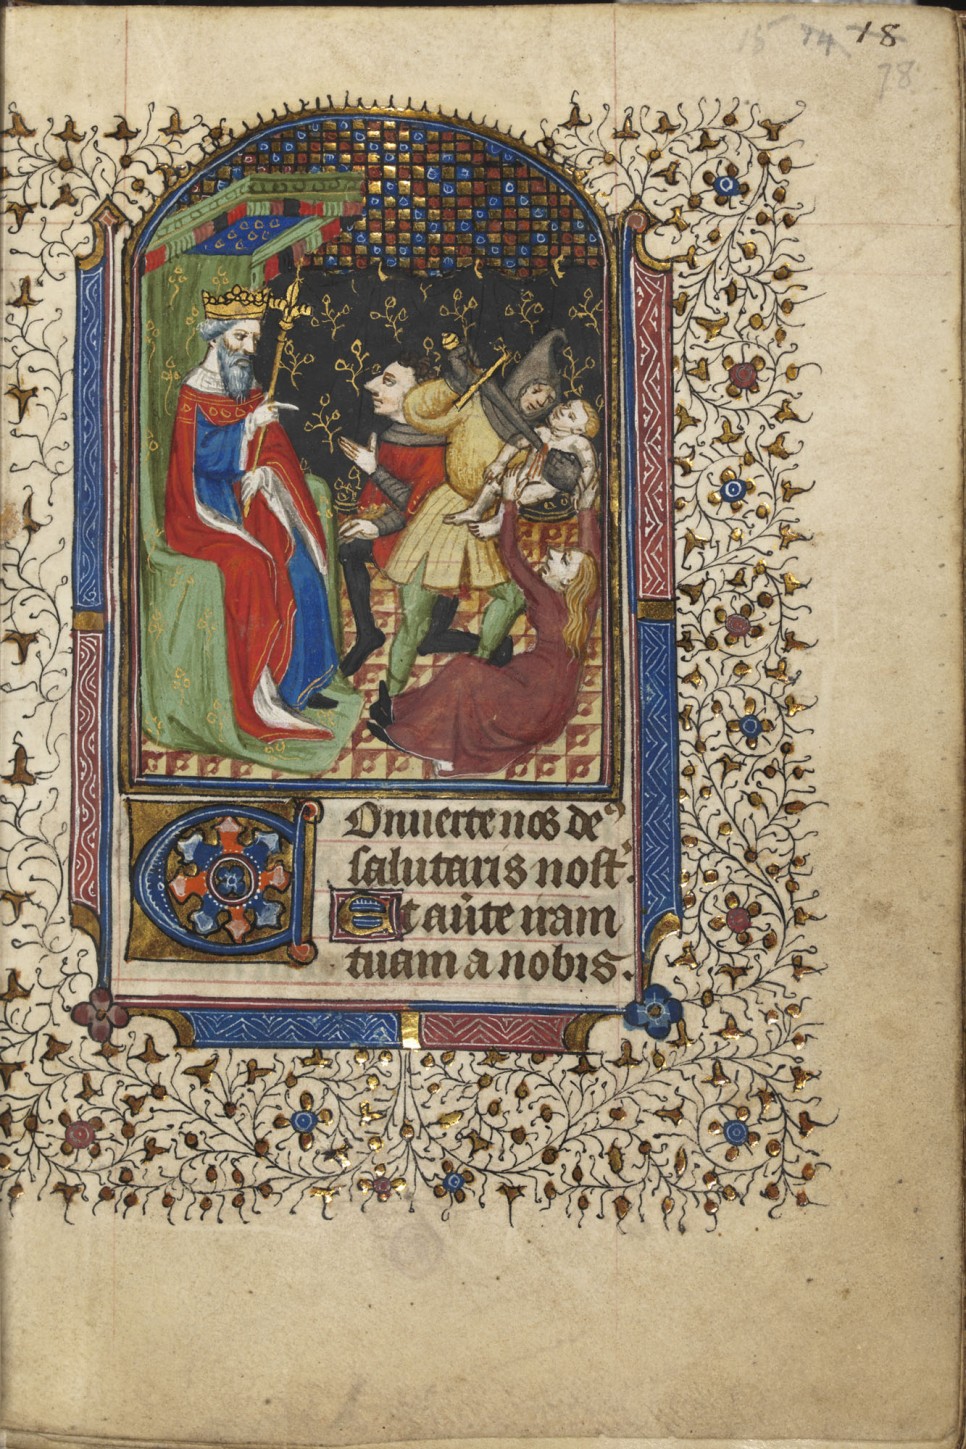 18
78
Conuerte nos de9
salutaris nost².
Et au̾te iram
tuam a nobis.